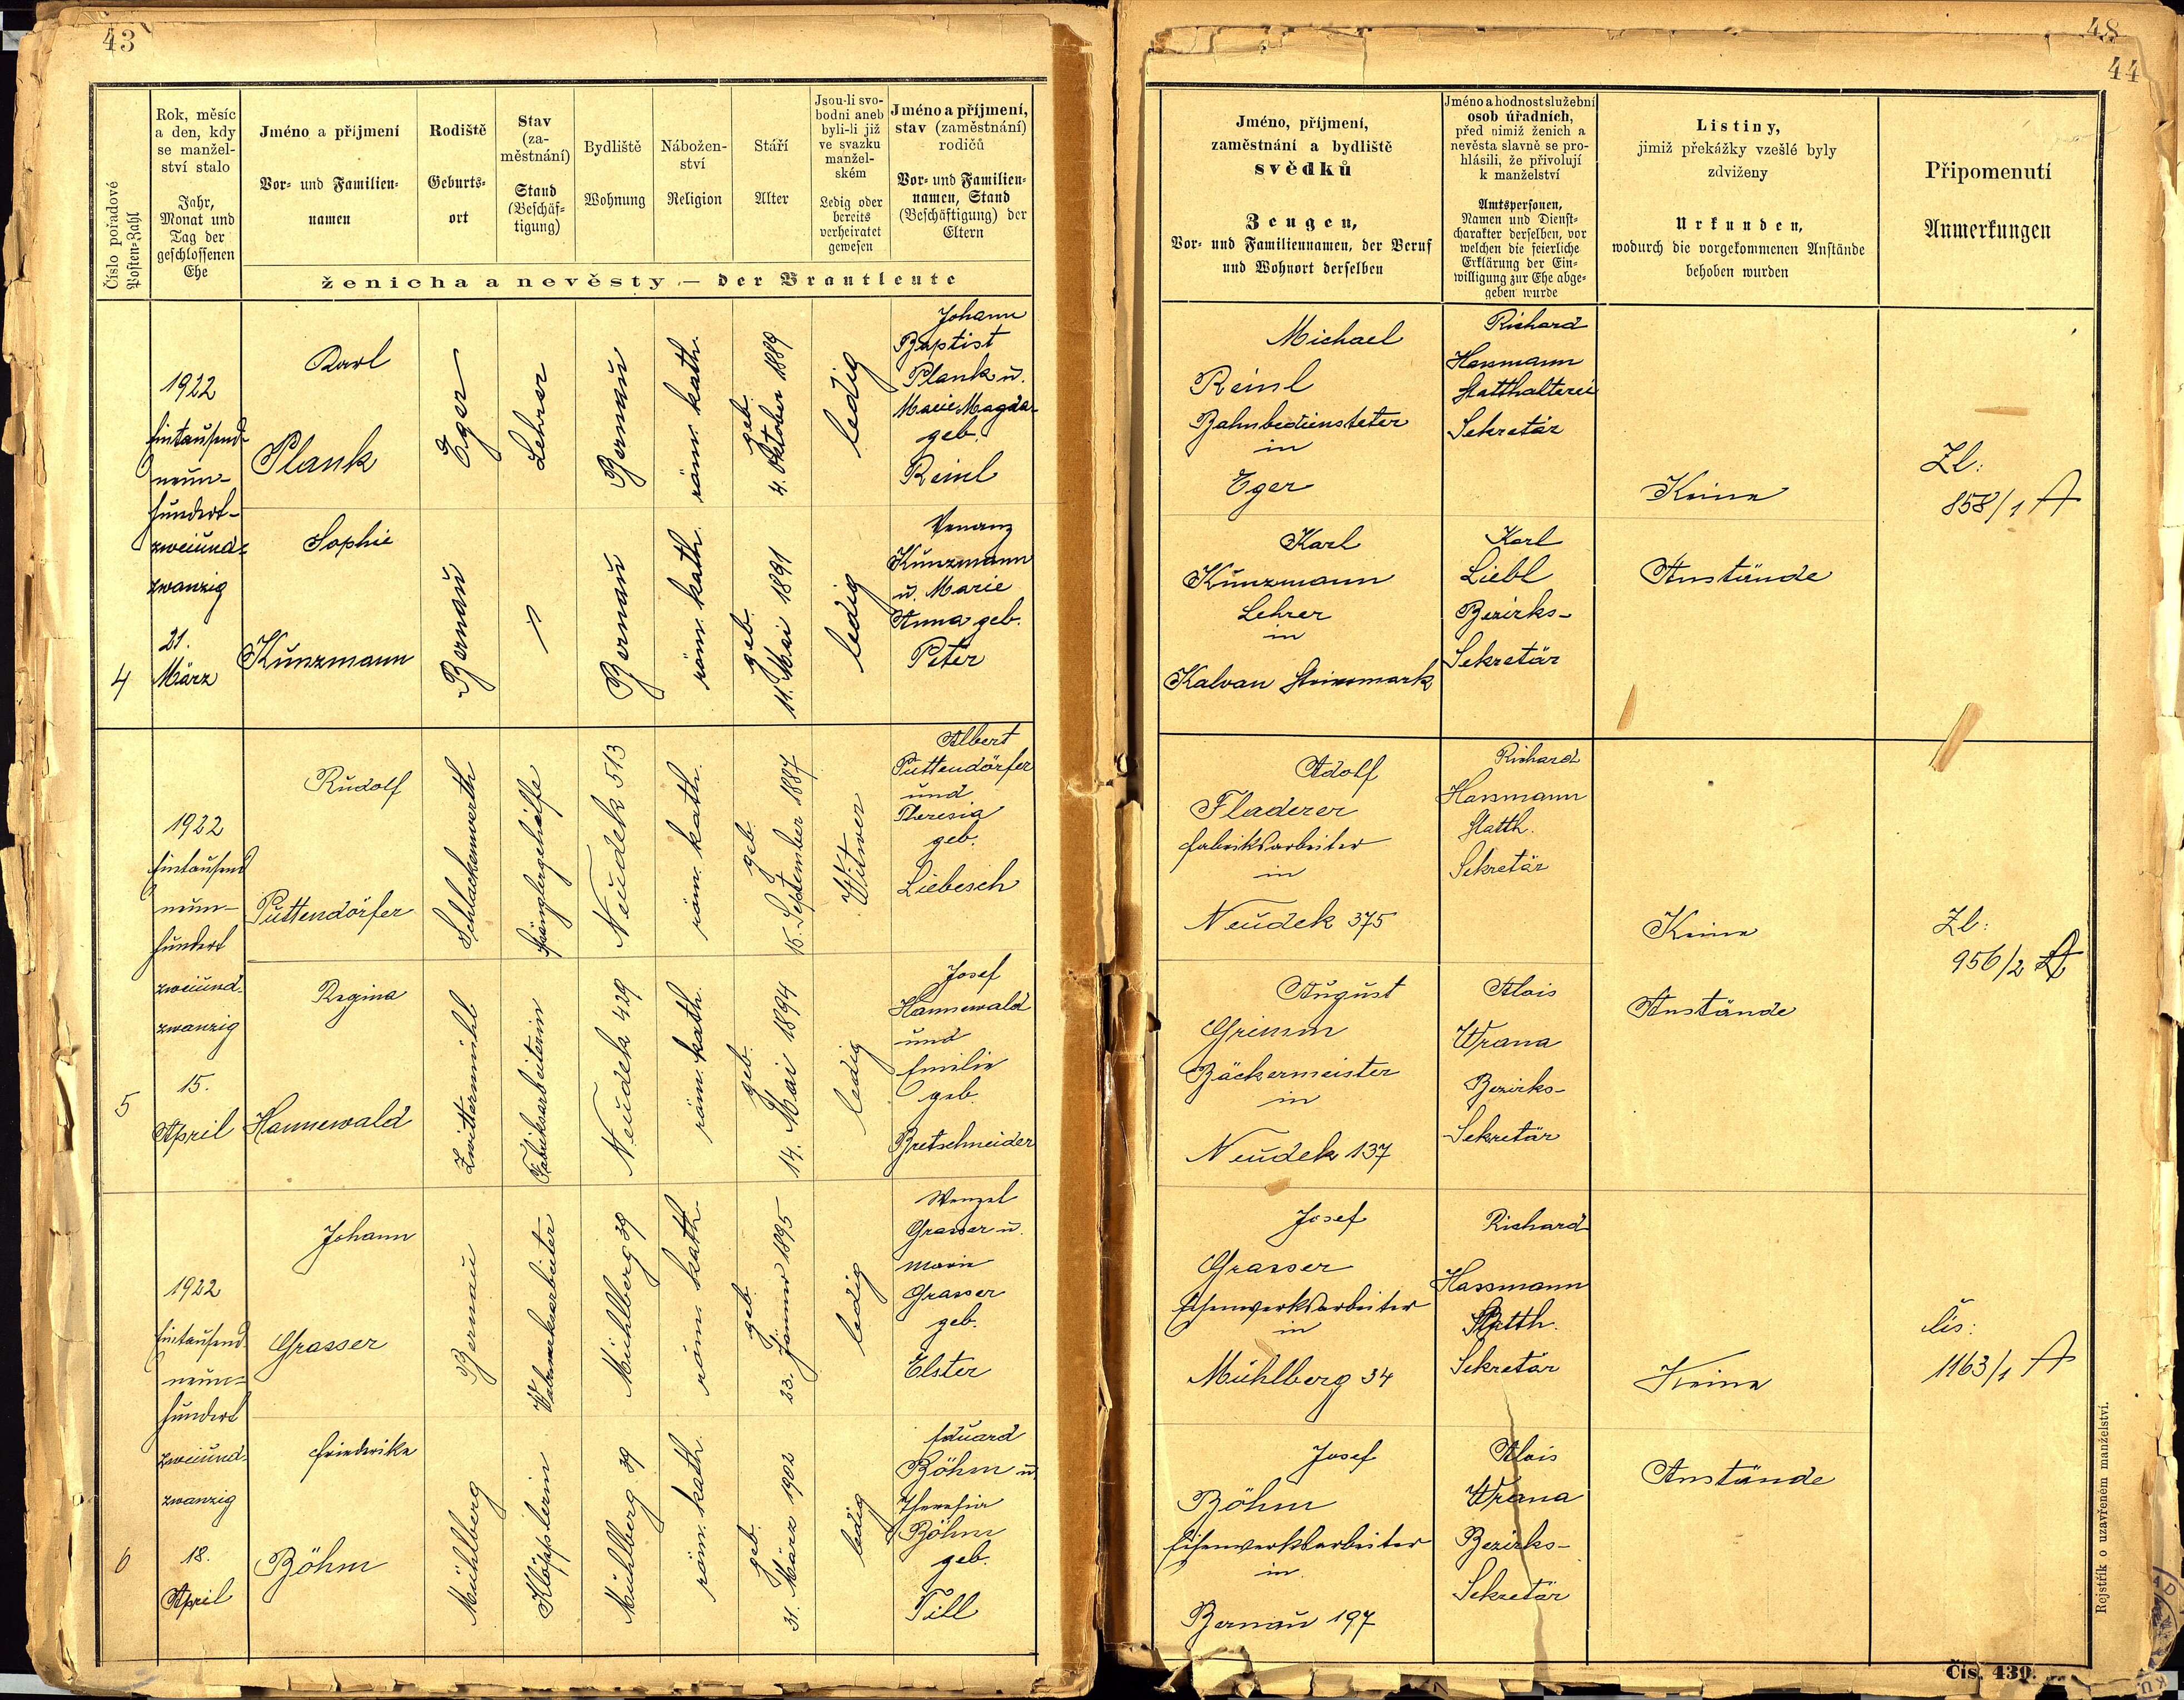 43
48
44
Číslo pořadové
Posten-Zahl
Rok, měsíc
a den, kdy
se manžel-
ství stalo
Jahr,
Monat und
Tag der
geschlossenen
Ehe
Jméno a příjmení
Vor- und Familien-
namen
Rodiště
Geburts-
ort
Stav
(za-
městnání)
Stand
(Beschäf-
tigung)
Bydliště
Wohnung
Nábožen-
ství
Religion
Stáří
Alter
Jsou-li svo-
bodni aneb
byli-li již
ve svazku
manžel-
ském
Ledig oder
bereits
verheiratet
gewesen
Jméno a příjmení,
stav (zaměstnání)
rodičů
Vor- und Familien-
namen, Stand
(Beschäftigung) der
Eltern
ženicha a nevěsty — der Brautleute
Jméno, příjmení,
zaměstnání a bydliště
svědků
Zeugen,
Vor- und Familiennamen, der Beruf
und Wohnort derselben
Jméno a hodnost služební
osob úřadních,
před nimiž ženich a
nevěsta slavně se pro-
hlásili, že přivolují
k manželství
Amtspersonen,
Namen und Dienst-
charakter derselben, vor
welchen die feierliche
Erklärung der Ein-
willigung zur Ehe abge-
geben wurde
Listiny,
jimiž překážky vzešlé byly
zdviženy
Urkunden,
wodurch die vorgekommenen Anstände
behoben wurden
Připomenutí
Anmerkungen
4
1922
Eintausend-
neun-
hundert-
zweiund-
zwanzig
21.
März
Karl
Plank
Eger
Lehrer
Bernau
röm. kath.
geb.
4. Oktober 1889
ledig
Johann
Baptist
Plank u.
Marie Magda-
geb.
Reinl
Michael
Reinl
Bahnbediensteter
in
Eger
Richard
Hassmann
Statthalterei
Sekretär
Keine
Zl:
858/1 A
Sophie
Kunzmann
Bernau
Bernau
röm. kath.
geb.
11. Mai 1891
ledig
Venanz
Kunzmann
u. Marie
Anna geb.
Peter
Karl
Kunzmann
Lehrer
in
Kalvan Steiermark
Karl
Liebl
Bezirks-
Sekretär
Anstände
5
1922
Eintausend
neun-
hundert
zweiund-
zwanzig
15.
April
Rudolf
Puttendörfer
Schlackenwerth
Spänglergehilfe
Neudek 513
röm. kath.
geb.
15. September 1887
Witwer
Albert
Puttendörfer
und
Theresia
geb.
Liebesch
Adolf
Fladerer
Fabriksarbeiter
in
Neudek 375
Richard
Hassmann
Statth.
Sekretär
Keine
Zl:
956/2 A
Regina
Hannewald
Zwittermühl
Fabriksarbeiterin
Neudek 429
röm. kath.
geb.
14. Mai 1894
ledig
Josef
Hannewald
und
Emilie
geb.
Bretschneider
August
Grimm
Bäckermeister
in
Neudek 137
Alois
Wrana
Bezirks-
Sekretär
Anstände
6
1922
Eintausend
neun-
hundert
zweiund-
zwanzig
18.
April
Johann
Grasser
Bernau
Walzwerksarbeiter
Mühlberg 39
röm. kath.
geb.
23. Jänner 1895
ledig
Wenzel
Grasser u.
Marie
Grasser
geb.
Elster
Josef
Grasser
Eisenwerksarbeiter
in
Mühlberg 34
Richard
Hassmann
Statth.
Sekretär
Keine
čís:
1163/1 A
Friederike
Böhm
Mühlberg
Klöpplerin
Mühlberg 39
röm. kath.
geb.
31. März 1902
ledig
Eduard
Böhm u.
Theresia
Böhm
geb.
Till
Josef
Böhm
Eisenwerksarbeiter
in
Bernau 197
Alois
Wrana
Bezirks-
Sekretär
Anstände
Rejstřík o uzavřeném manželství.
Čís. 439.